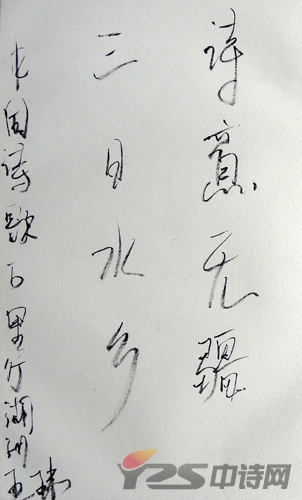 诗意无疆
三日水乡
中国诗歌万里行湖州
YZS中诗网